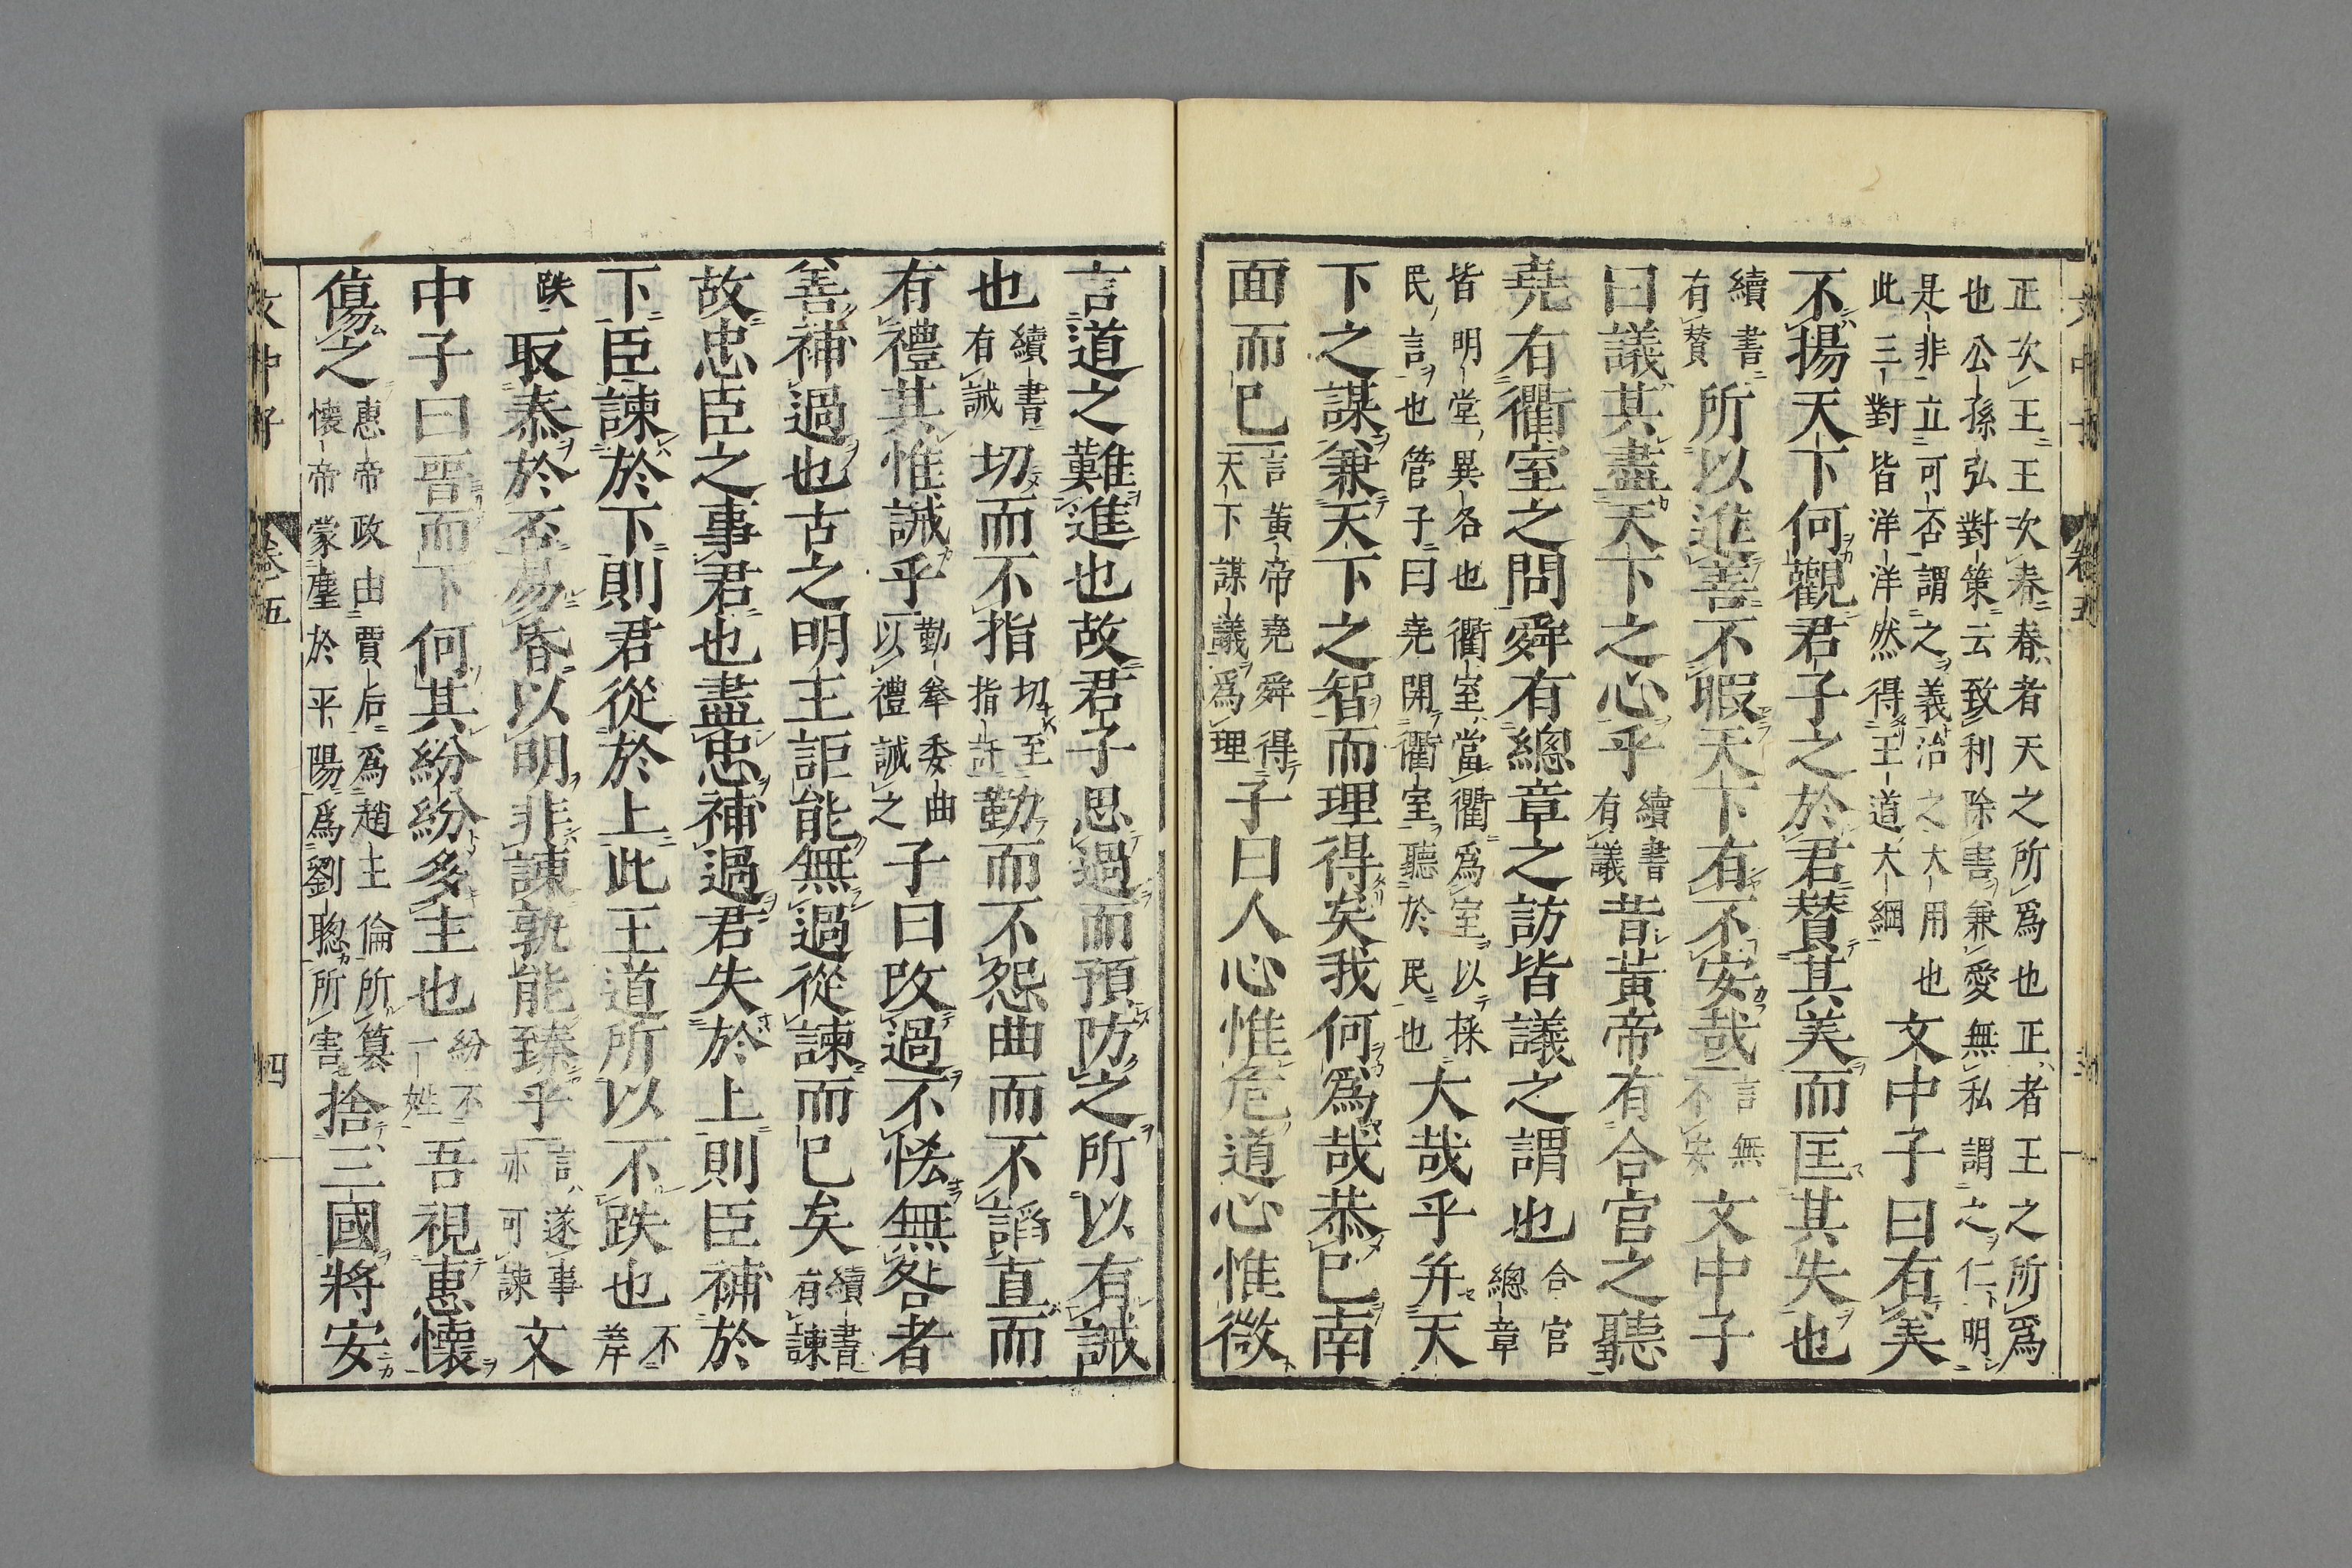 正次王王次春春者天之所爲也正者王之所爲
也公孫弘對策云致利除害兼愛無私謂之仁明
是非立可否謂之義治之大用也
此三對皆洋洋然得王道大綱
文中子曰有美
不揚天下何觀君子之於君贊其美而匡其失也
續書
有贊
所以進善不暇天下有不安哉
言無
不安
文中子
曰議其盡天下之心乎
續書
有議
昔黃帝有合官之聽
堯有衢室之問舜有總章之訪皆議之謂也
合官
總章
皆明堂異名也衢室當衢爲室以採
民言也管子曰堯開衢室聽於民也
大哉乎并天
下之謀兼天下之智而理得矣我何爲哉恭已南
面而已
言黃帝堯舜得
天下謀議爲理
子曰人心惟危道心惟微
言道之難進也故君子思過而預防之所以有誡
也
續書
有誡
切而不指
切至
指訐
勤而不怨曲而不謟直而
有禮其惟誡乎
勤拳委曲
以禮誡之
子曰改過不恡無咎者
善補過也古之明王詎能無過從諫而已矣
續書
有諫
故忠臣之事君也盡忠補過君失於上則臣補於
下臣諫於下則君從於上此王道所以不跌也
不
差
跌
取泰於否易昏以明非諫孰能臻乎
言遂事
亦可諫
文
中子曰晉而下何其紛紛多主也
紛不
一姓
吾視惠懷
傷之
惠帝政由賈后爲趙王倫所篡
懷帝蒙塵於平陽爲劉聰所害
捨三國將安
文中子
卷五
四